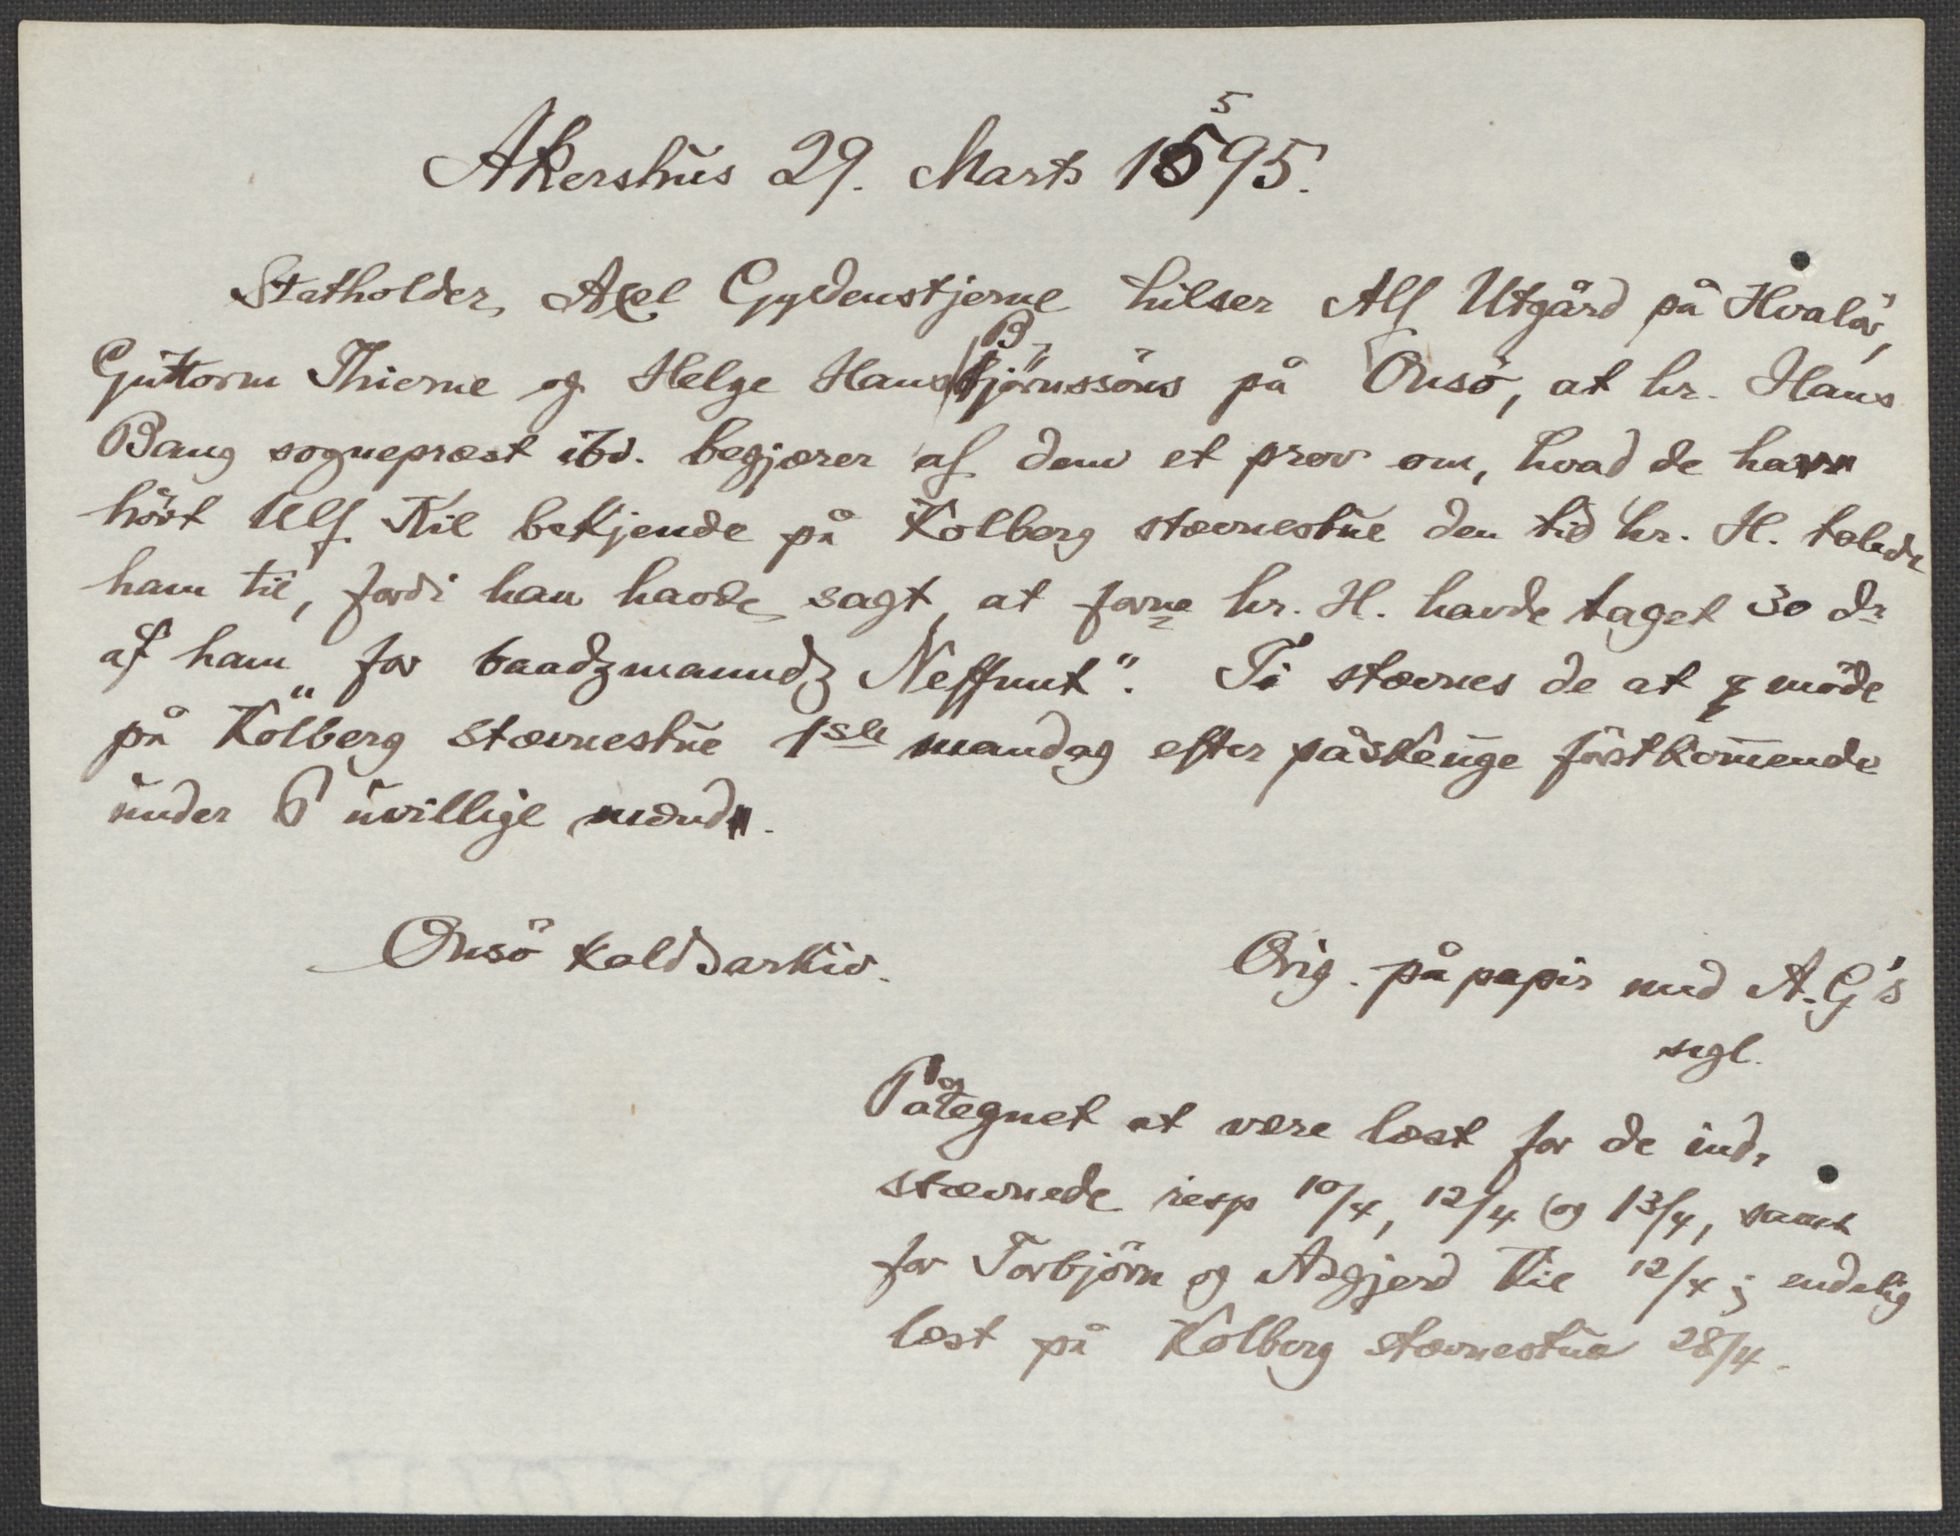 Akershus 29. Marts 1595.
Statholder Axel Gyldenstjerne hilser Alf Utgård på Hvalör,
Guttorm Thierne og Helge Hans Björnssöns på Onsö, at hr. Hans
Bang sognepræst ibd. begjærer af dem et prov om, hvad de har
hört Ulf Kil bekjende på Kolberg stævnestue den tid hr. H. talede
ham til, fordi han havde sagt, at forne hr. H. havde taget 30 dr
af ham "for baadzmanndz Neffnnt". Ti stævnes de at möde
på Kolberg stævnestue 1ste mandag efter påskeuge förstkommende
under 6 uvillige mænd.
Onsö kaldsarkiv.
Orig. på papir med A. G's
segl.
Påtegnet at være læst for de ind-
stævnede resp 10/4, 12/4 og 13/4, samt
for Torbjörn og Asgjerd Kil 12/4; endelig
læst på Kolberg stævnestue 28/4.